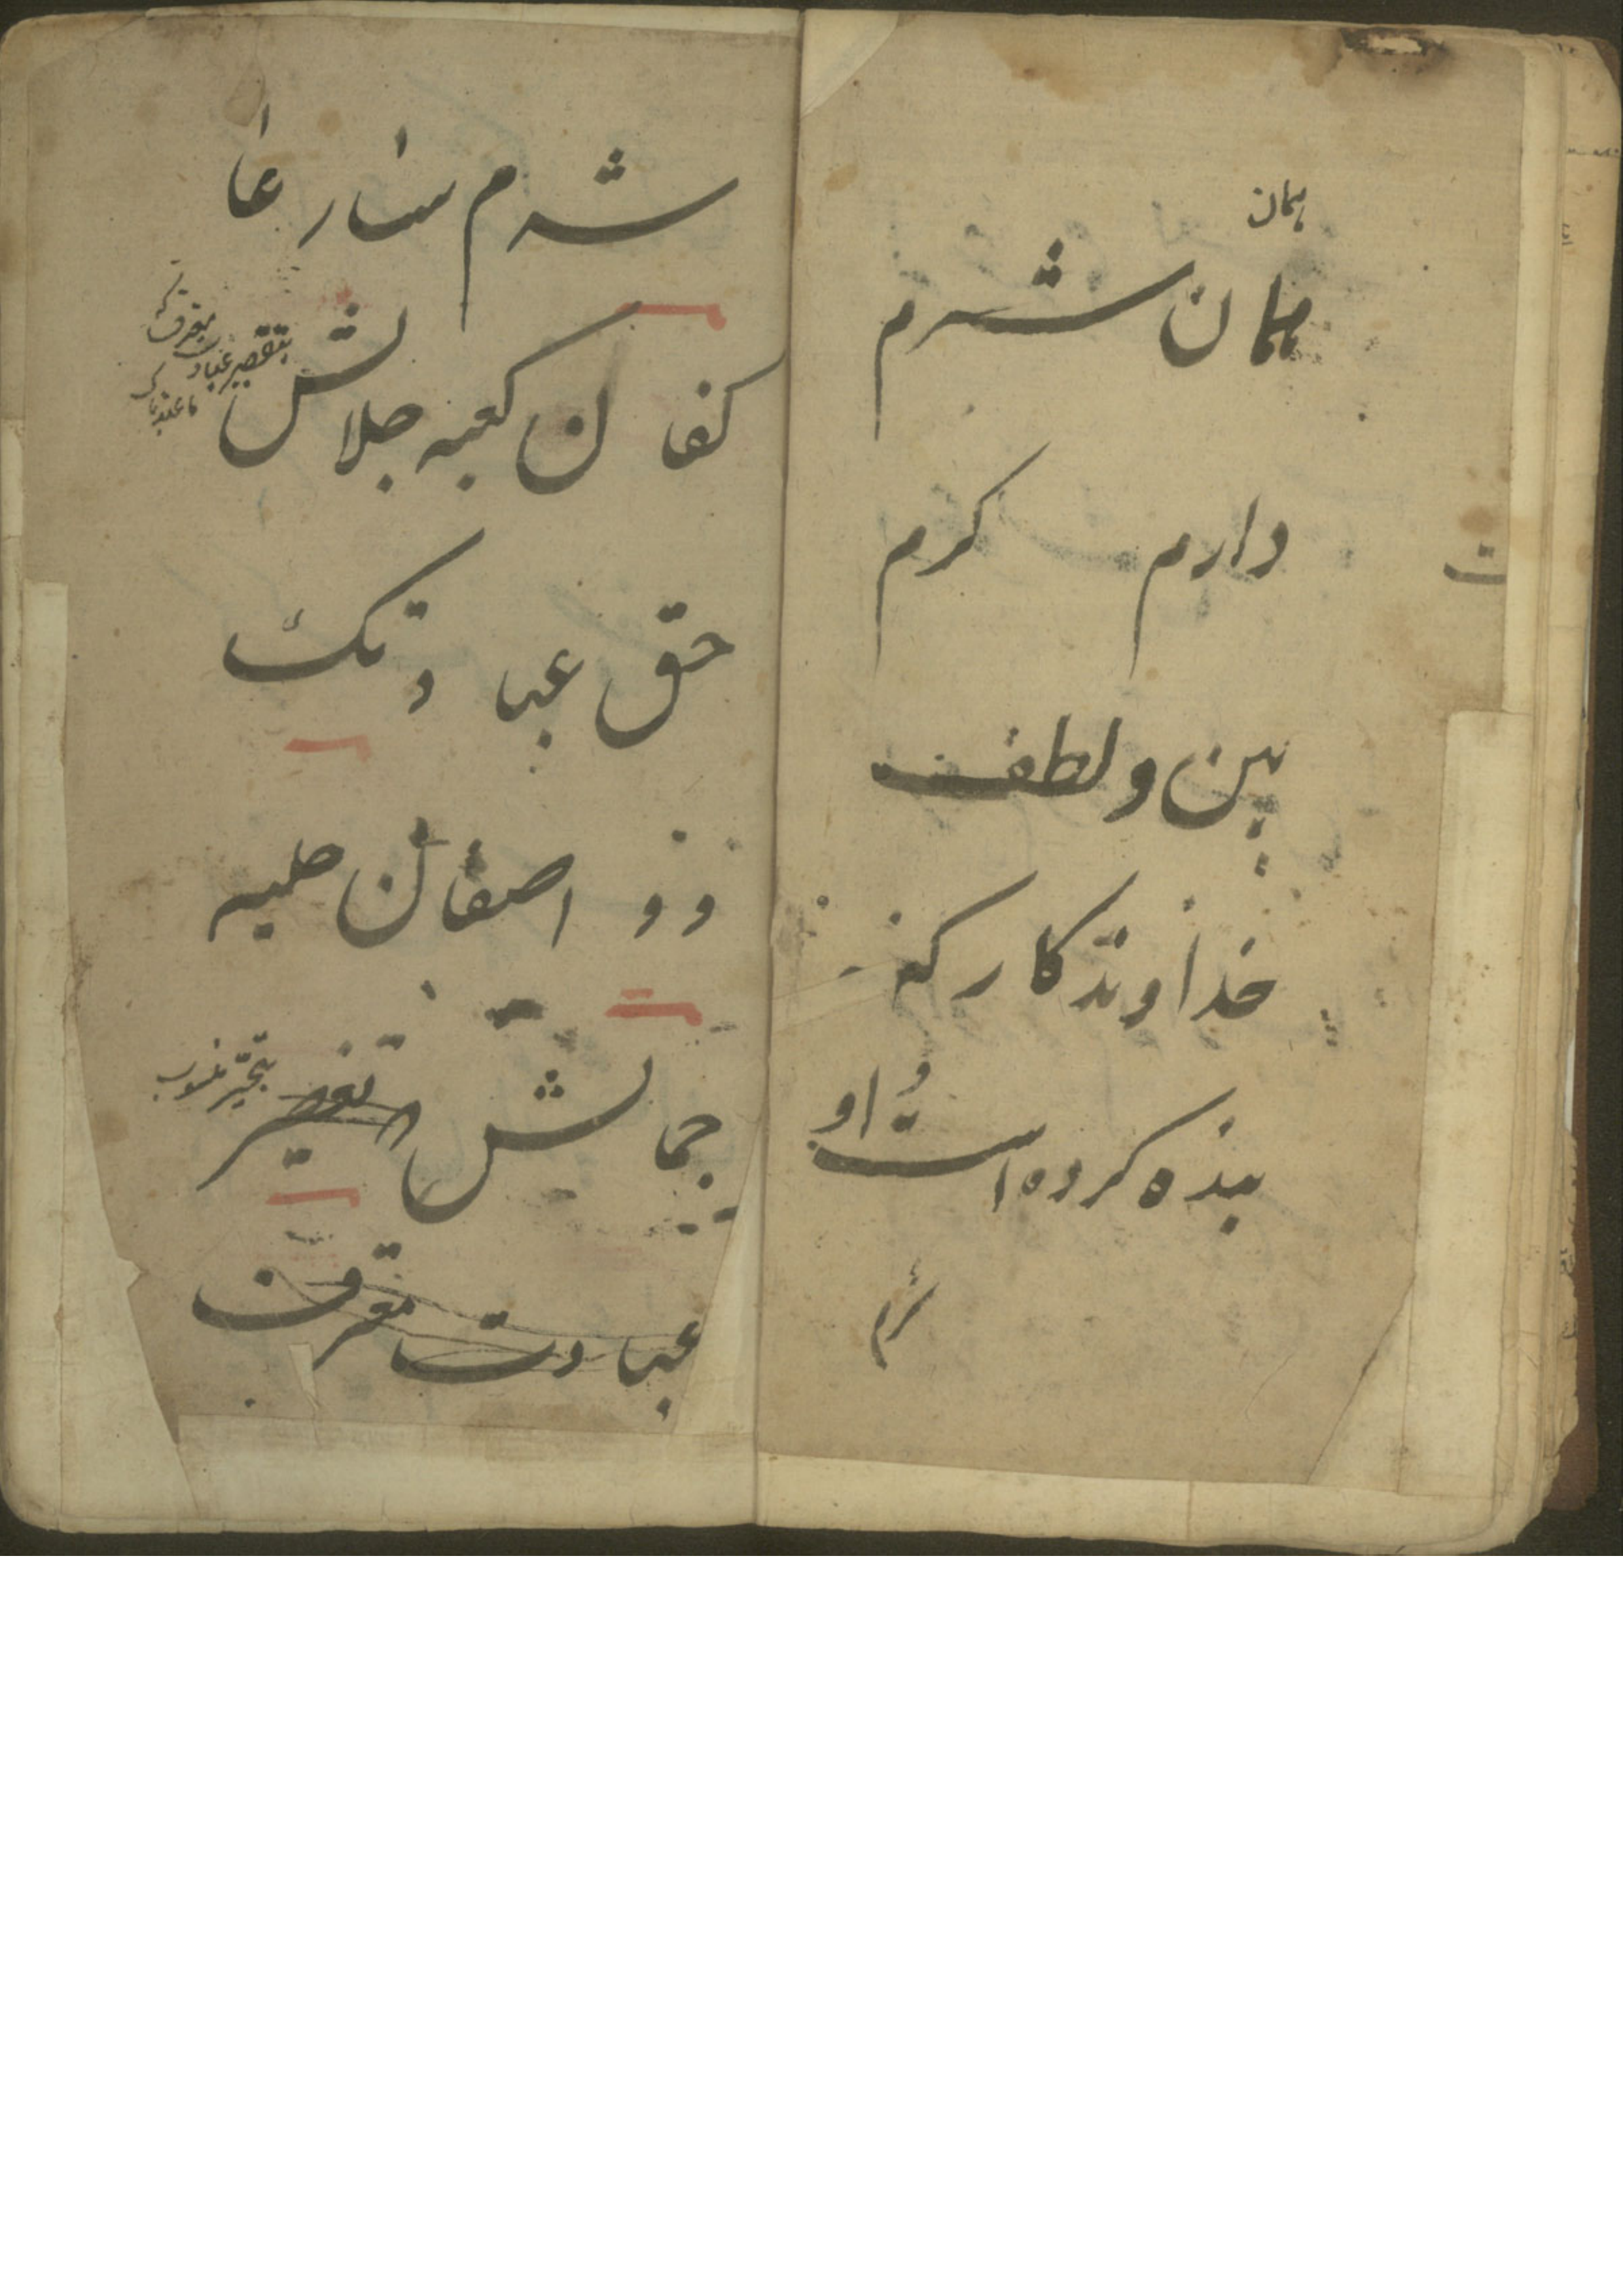 همان
همان شرم
دارم کرم
بین و لطف
خداوندکار کنه
بنده کرده است او
شرم
شرم سار عا
کفان کعبه جلالش
بتقصیر عبادت معترف که
ما عبدناک
حق عبادتک
و و اصفان حلیه
جمالش
بتحیر منسوب
عبادت معترف